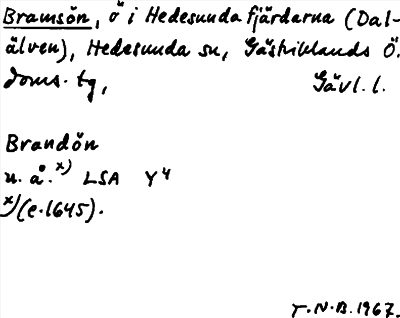 Bramsön, ö i Hedesunda fjärdarna (Dal-
älven), Hedesunda sn, Gästriklands Ö.
doms. tg, Gävl. l.
Brandön
u. å. x) LSA Y4
x) (e. 1645).
T. N. B. 1967.